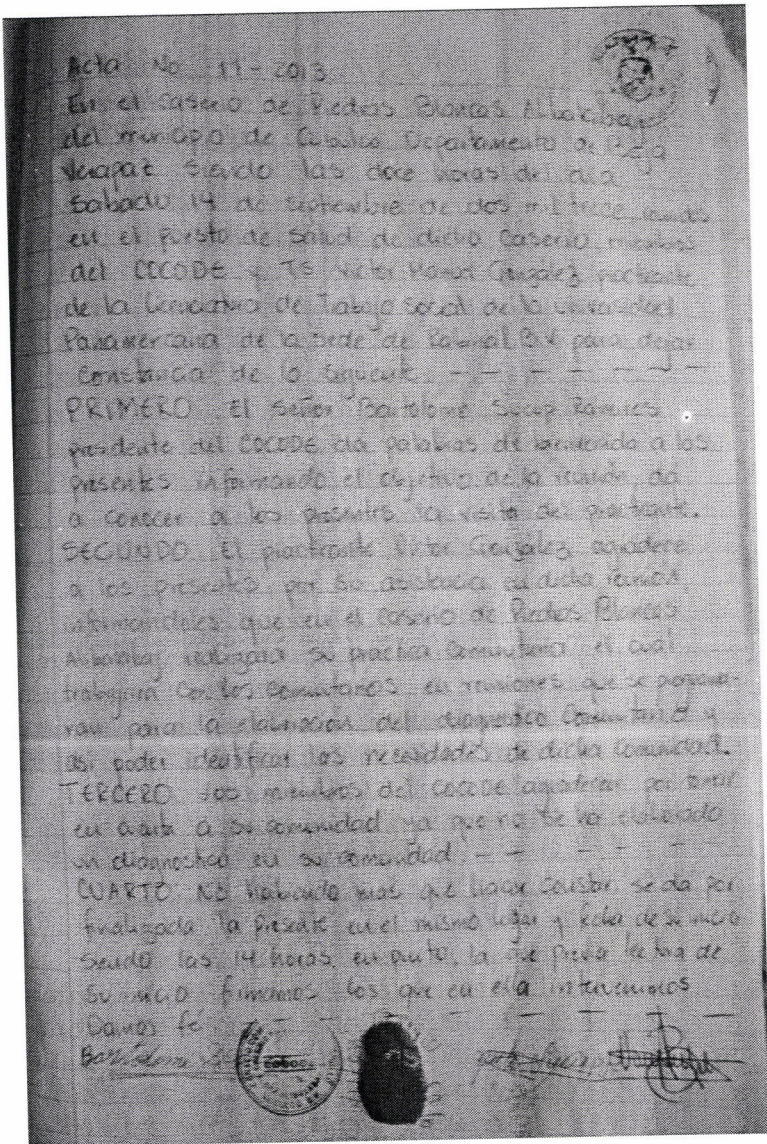 Acta No 17-2013
En el Caserio de Piedras Blancas
del municipio de Cubulco Departamento de Baja
Verapaz siendo las doce horas del dia
Sabado 14 de septiembre de dos mil trece
en el puesto de salud de dicho Caserio miembros
del COCODE y TS Victor Manuel González practicante
de la Licenciatura de Trabajo Social de la universidad
Panamericana de la sede de Rabinal B.V para dejar
constancia de lo siguiente - - - - - - -
PRIMERO El señor Bartolome Ramires
presidente del COCODE da palabras de bienvenida a los
presentes informando el objetivo de la reunión, da
a conocer a los presentes la visita del practicante.
SEGUNDO: El practicante Victor González, agradece
a los presentes por su asistencia en dicha reunión
informandoles que en el Caserio de Piedras Blancas
realizará su practica Comunitaria el cual
trabajara con los Comunitarios en reuniones que se
ran para la elaboración del diagnostico Comunitario y
asi poder identificar las necesidades de dicha Comunidad.
TERCERO: Los miembros del COCODE agradecen por tomar
en cuenta a su comunidad ya que no se ha elaborado
un diagnostico en su comunidad - - - - -
CUARTO: No habiendo mas que hacer constar se da por
finalizada la presente en el mismo lugar y fecha de su inicio
siendo las 14 horas en punto, la que previa lectura de
su inicio firmamos los que en ella intervenimos
Damos fé - - - - -
COCODE